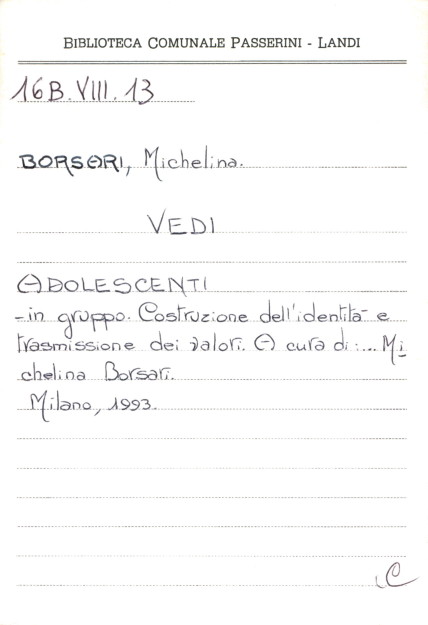 BIBLIOTECA COMUNALE PASSERINI - LANDI
16B.VIII.13
BORSARI, Michelina.
VEDI
ADOLESCENTI
-in gruppo. Costruzione dell'identità e
trasmissione dei valori. A cura di:... Mi
chelina Borsari.
Milano, 1993.
C